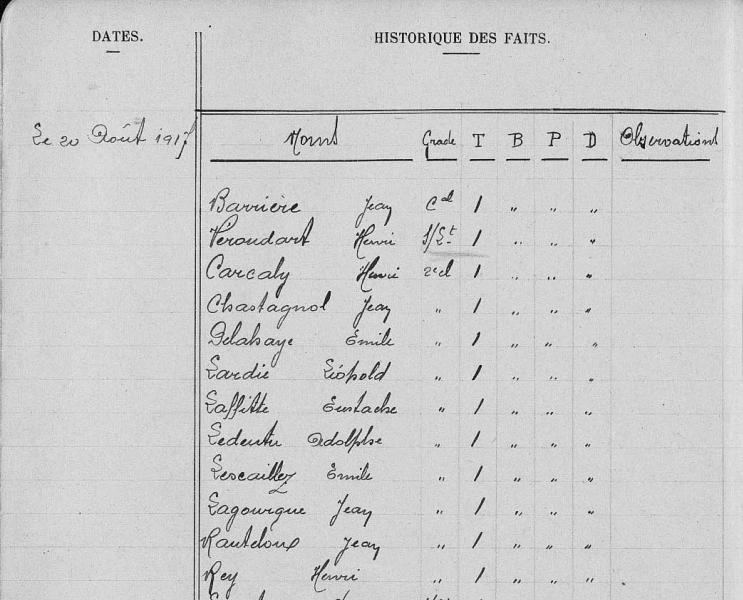 DATES. HISTORIQUE DES FAITS.
Le 20 Août 1917 Noms Grade T B P D Observations
Barrière Jean Cal 1 " " "
Véroudart Henri S/Lt 1 " " "
Carcaly Henri 2e cl 1 " " "
Chastagnol Jean " 1 " " "
Delahaye Emile " 1 " " "
Lardie Léopold " 1 " " "
Laffitte Eustache " 1 " " "
Ledentu Adolphe " 1 " " "
Lescaillez Emile " 1 " " "
Lagourgue Jean " 1 " " "
Jean " 1 " " "
Rey Henri " 1 " " "